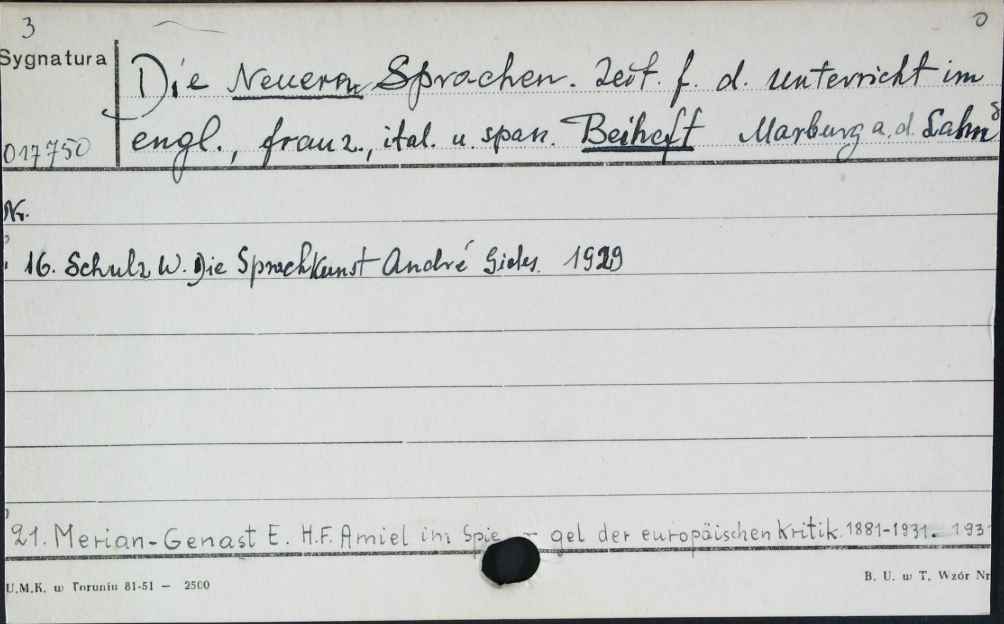 3
Sygnatura
Die Neueren Sprachen. Zeit. f. d. Unterricht im
017750
engl., franz., ital. u. span. Beiheft Marburg a. d. Lahn 8
Nr.
16. Schulz W. Die Sprachkunst André Gides. 1929
21. Merian-Genast E. H.F. Amiel im Spie - gel der europäischen Kritik. 1881-1931. 193
U.M.K. w Toruniu 81-51 — 2500
B. U. w T. Wzór Nr